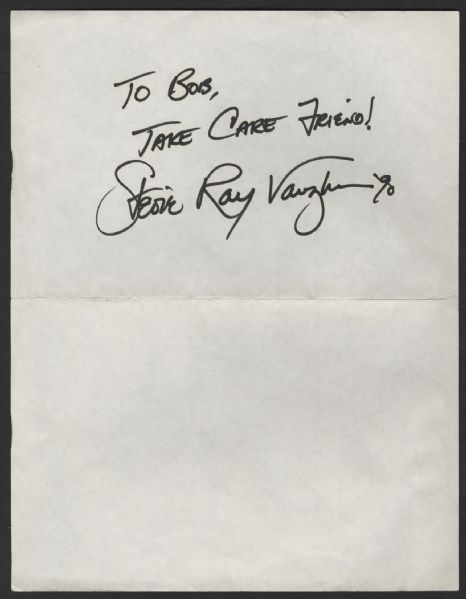 To Bob,
Take Care Friend!
Stevie Ray Vaughan '90